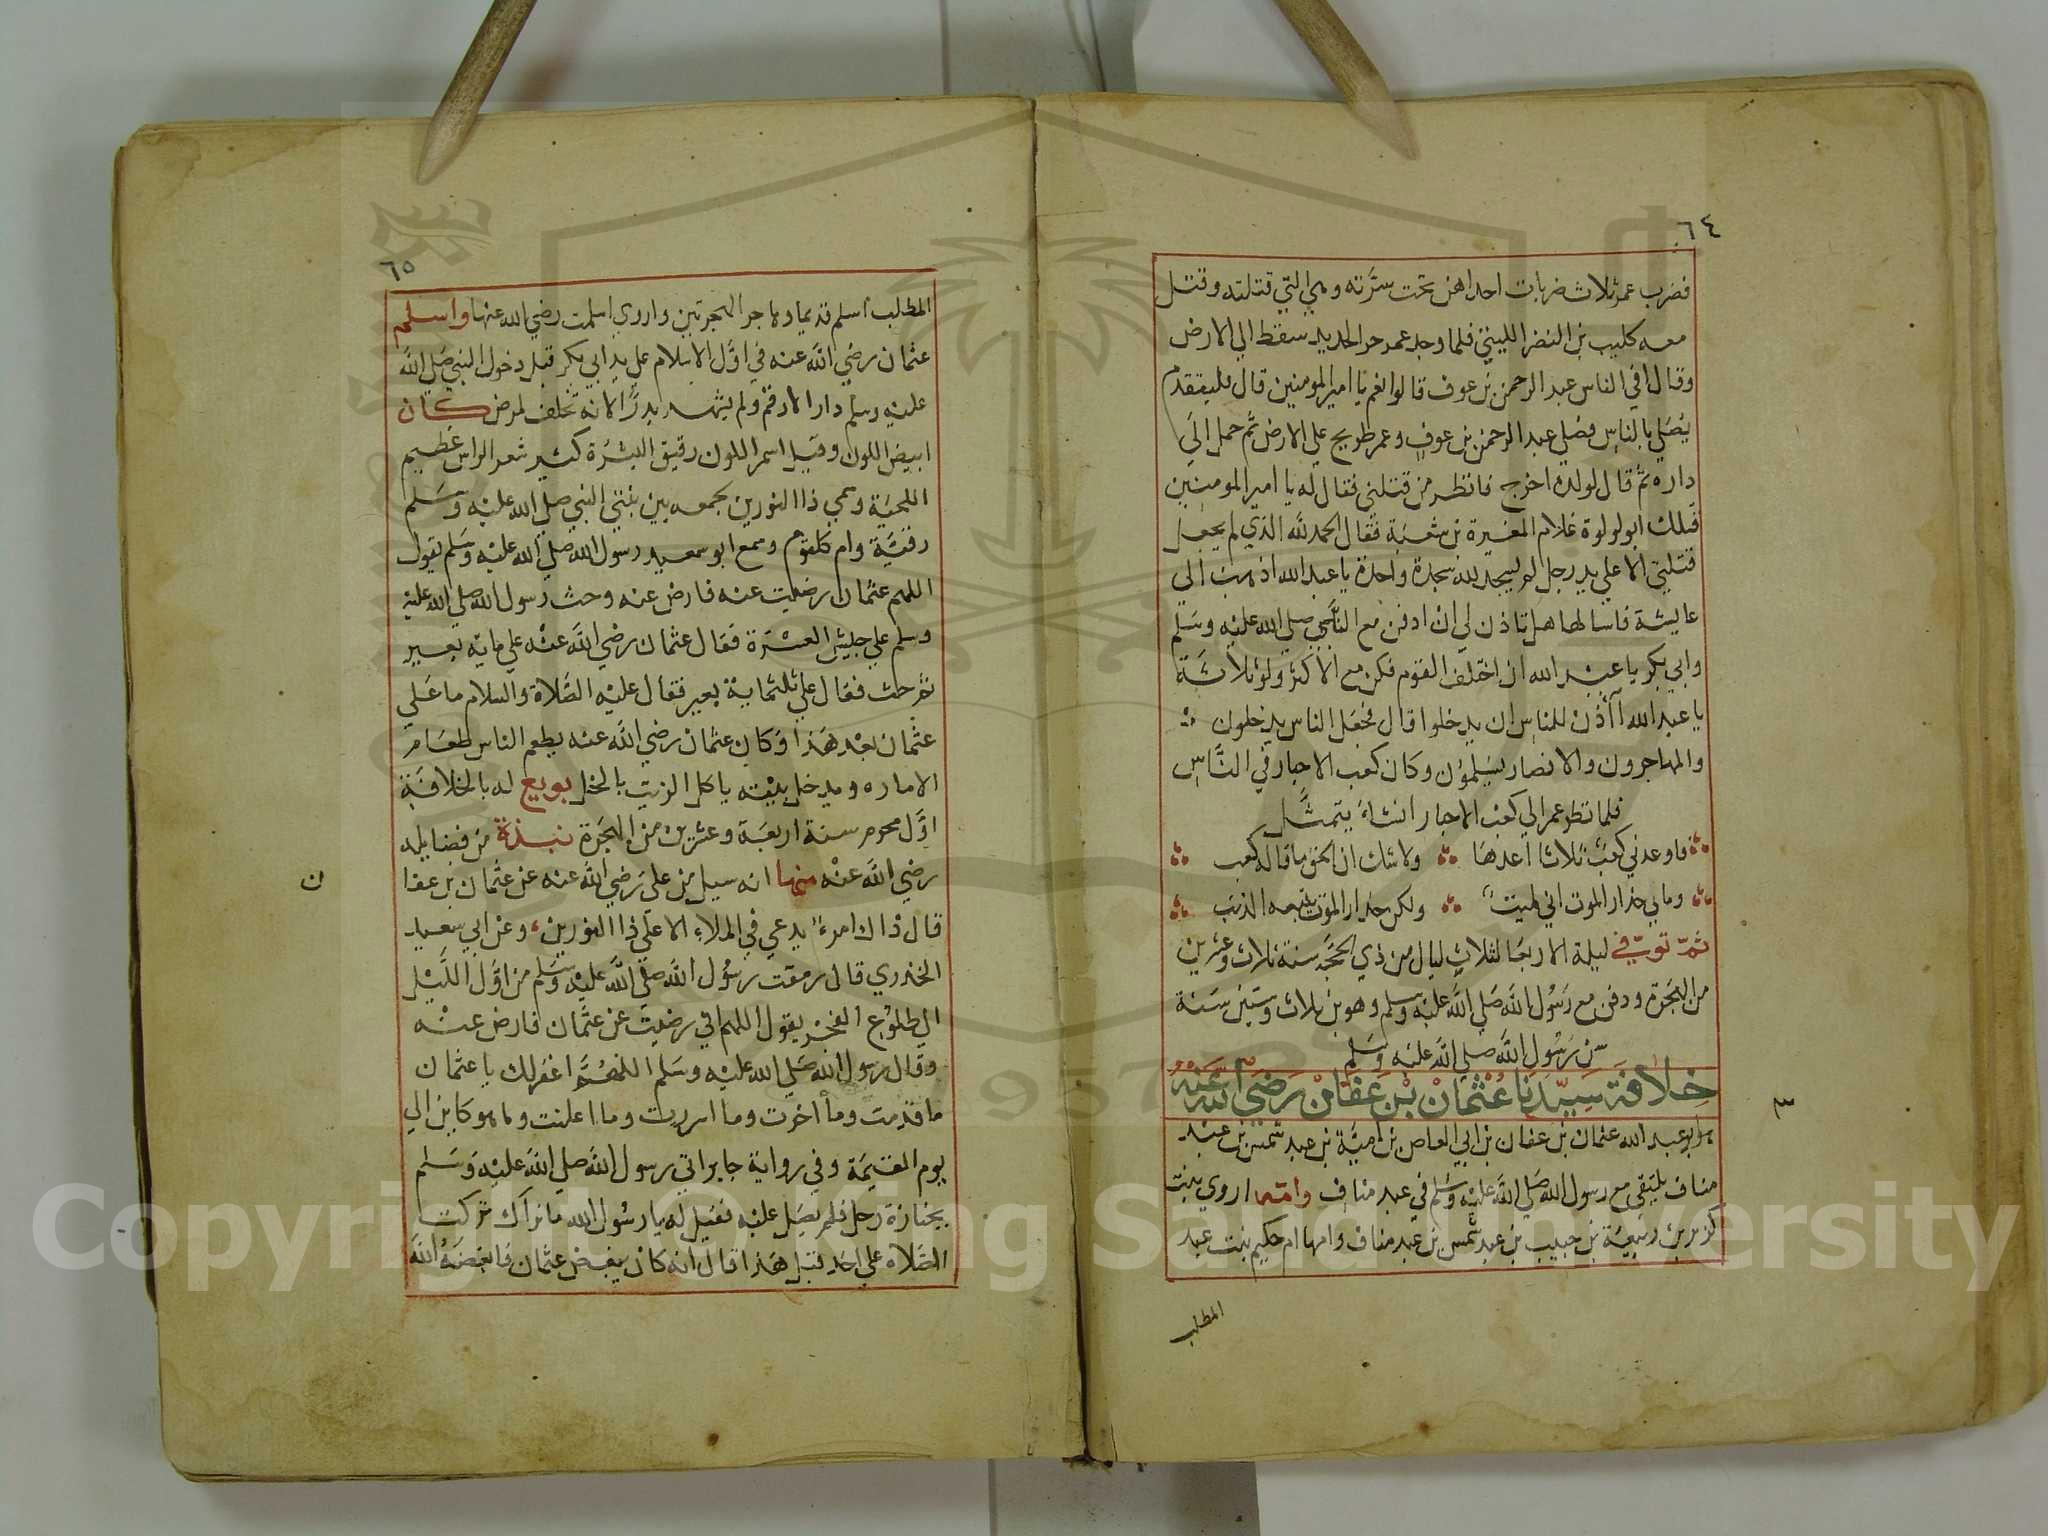 ٦٤
فضرب عمر ثلاث ضربات احداهن تحت سرته وهي التي قتلته وقتل
معه كليب بن النضر الليثي فلما وجد عمر حر الحديد سقط الي الارض
وقال افي الناس عبد الرحمن بن عوف قالوا نعم يا امير المومنين قال فليتقدم
يصلي بالناس فصلي عبد الرحمن بن عوف وعمر طريح علي الارض ثم حمل الي
داره ثم قال لولده اخرج فانظر من قتلني فقال له يا امير المومنين
قتلك ابو لولوة غلام المغيرة بن شعبة فقال الحمد لله الذي لم يجعل
قتلتي الا علي يد رجل لم يسجد لله سجدة واحدة يا عبد الله اذهب الي
عايشة فاسالها هل تاذن لي ان ادفن مع النبي صلي الله عليه وسلم
وابي بكر يا عبد الله ان اختلف القوم فكن مع الاكثر ولو ثلاثة
يا عبد الله أأذن للناس ان يدخلوا قال فجعل الناس يدخلون
والمهاجرون والانصار يسلمون وكان كعب الاحبار في الناس
فلما نظر عمر الي كعب الاحبار انشاء يتمثل
فاوعدني كعب ثلاثا اعدها ولا شك ان الحق ما قاله كعب
وما بي حذار الموت اني لميت ولكن حذار الموت يتبعه الذنب
ثم توفي ليلة الاربعا لثلاث ليال من ذي الحجة سنة ثلاث وعشرين
من الهجرة ودفن مع رسول الله صلي الله عليه وسلم وهو بن ثلاث وستين سنة
سن رسول الله صلي الله عليه وسلم
خلافة سيدنا عثمان بن عفان رضي الله عنه
هو ابو عبد الله عثمان بن عفان بن ابي العاص بن امية بن عبد شمس بن عبد
مناف يلتقي مع رسول الله صلي الله عليه وسلم في عبد مناف وامه اروي بنت
كريز بن ربيعة بن حبيب بن عبد شمس بن عبد مناف وامها ام حكيم بنت عبد
المطلب
٦٥
المطلب اسلم قديما وهاجر الهجرتين واروي اسلمت رضي الله عنها واسلم
عثمان رضي الله عنه في اول الاسلام علي يد ابي بكر قبل دخول النبي صلي الله
عليه وسلم دار الارقم ولم يشهد بدرا لانه تخلف لمرض كان
ابيض اللون وقيل اسمر اللون رقيق البشرة كثير شعر الراس عظيم
اللحية وسمي ذا النورين بجمعه بين بنتي النبي صلي الله عليه وسلم
رقية وام كلثوم وسمع ابو سعيد رسول الله صلي الله عليه وسلم يقول
اللهم عثمان رضيت عنه فارض عنه وحث رسول الله صلي الله عليه
وسلم علي جيش العسرة فقال عثمان رضي الله عنه علي مايه بعير
ثم حث فقال علي ثلثماية بعير فقال عليه الصلاة والسلام ما علي
عثمان بعد هذا وكان عثمان رضي الله عنه يطعم الناس طعام
الاماره ويدخل بيته ياكل الزيت بالخل بويع له بالخلافة
اول محرم سنة اربعة وعشرين من الهجرة نبذة من فضايله
رضي الله عنه منها انه سيل من علي رضي الله عنه عن عثمان بن عفا
ن
قال ذاك امرء يدعي في الملاء الاعلي ذا النورين وعن ابي سعيد
الخدري قال رمقت رسول الله صلي الله عليه وسلم من اول الليل
الي طلوع الفجر يقول اللهم اني رضيت عن عثمان فارض عنه
وقال رسول الله صلي الله عليه وسلم اللهم اغفر لك يا عثمان
ما قدمت وما اخرت وما اسررت وما اعلنت وما هو كاين الي
يوم القيمة وفي رواية جابر اتي رسول الله صلي الله عليه وسلم
بجنازة رجل فلم يصل عليه فقيل له يا رسول الله ما نراك تركت
الصلاة علي احد قبل هذا قال انه كان يبغض عثمان فابغضه الله
Copyright © King Saud University
1957